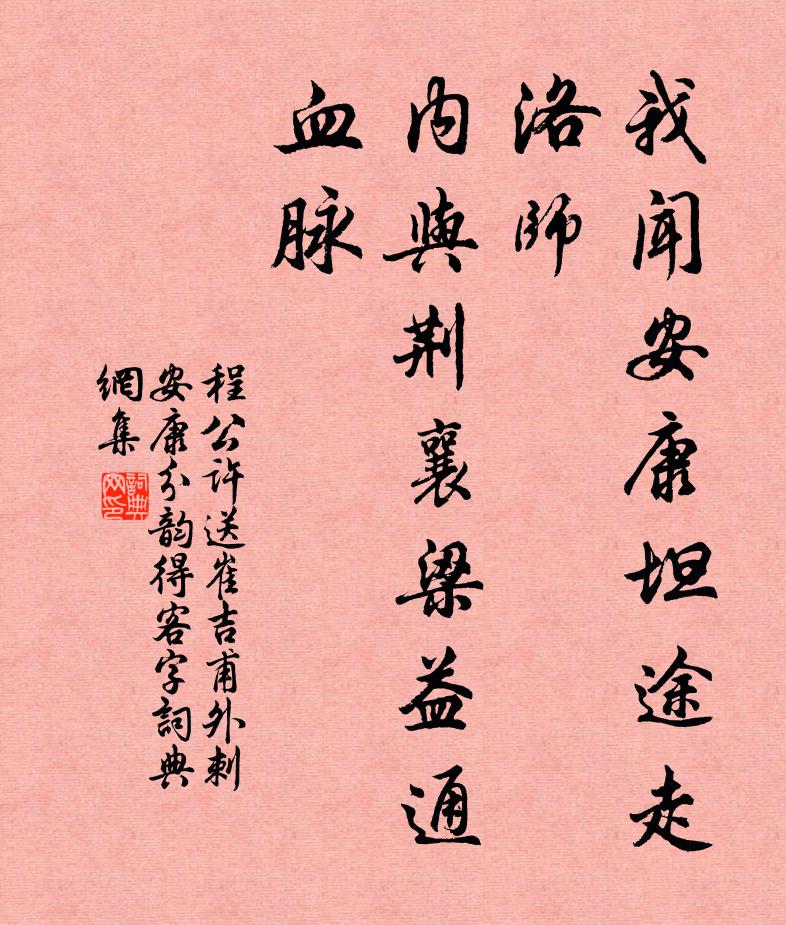 我聞安康坦途走
洛師
内與荆襄梁益通
血脉
程公許送崔吉甫外刺
安康分韵得客字詞典
網集
詞典
网印